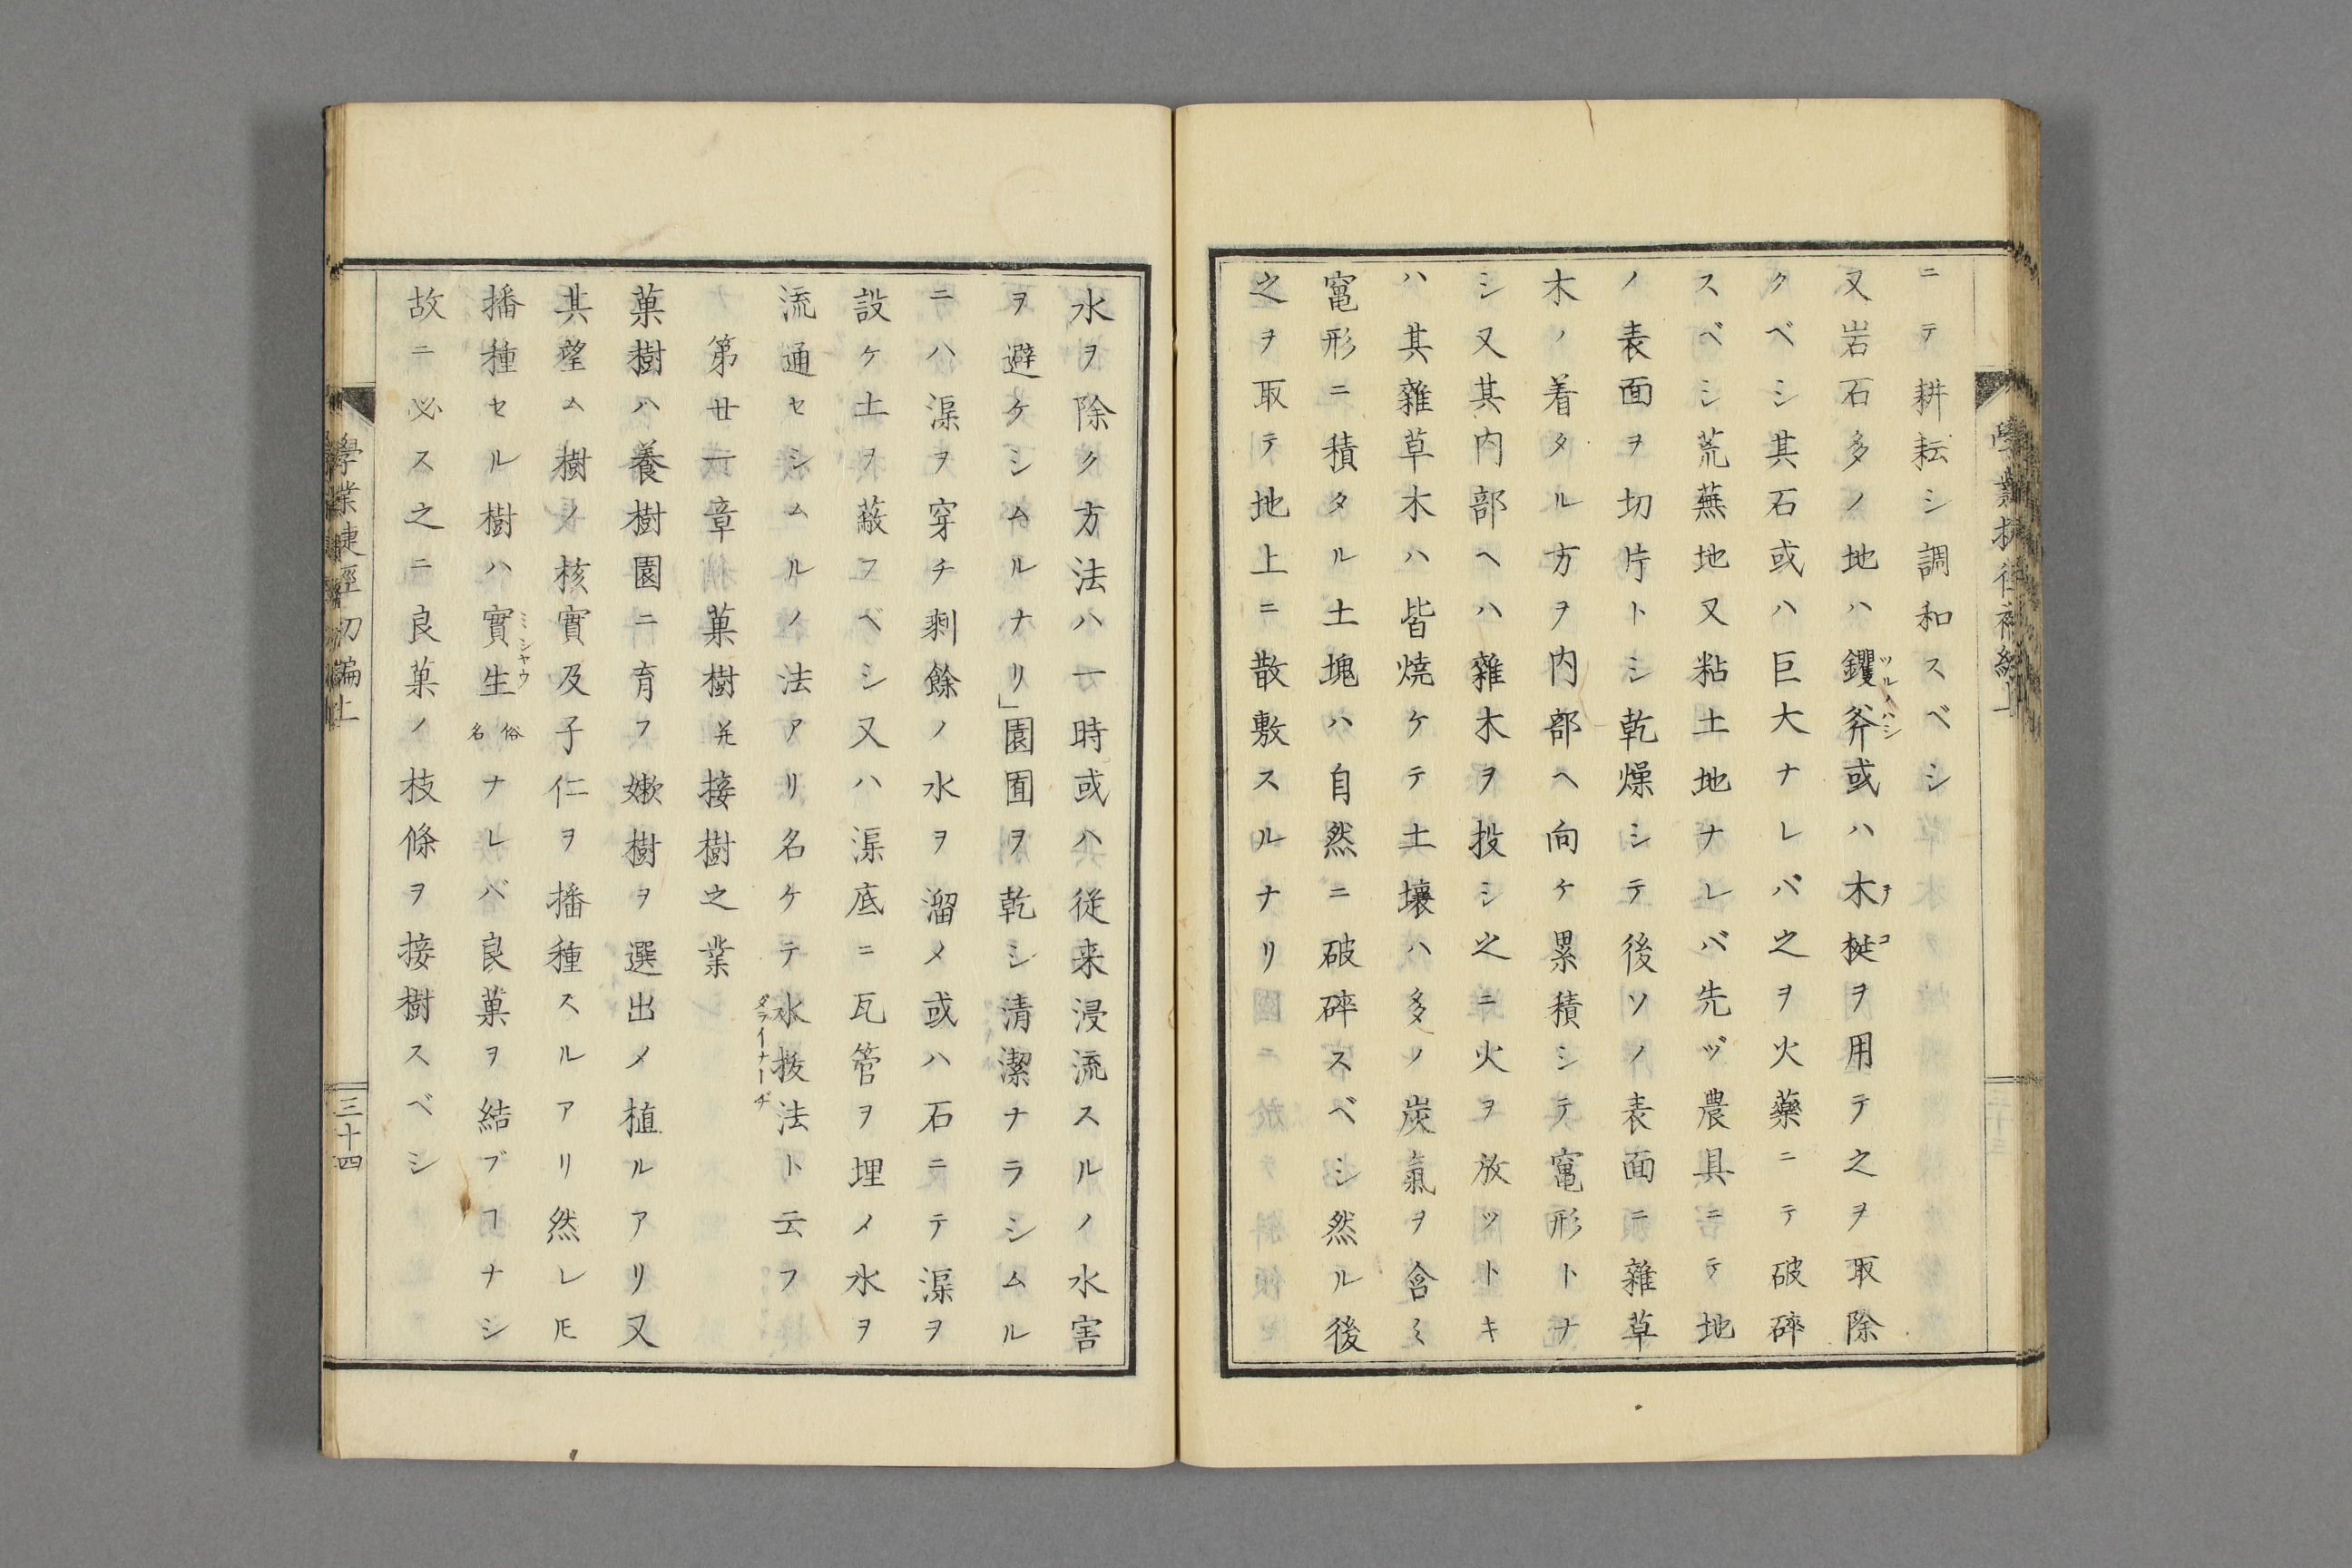 ニテ耕耘シ調和スベシ
又岩石多ノ地ハ钁斧或ハ木梃ヲ用テ之ヲ取除
ツルノハシ
テコ
クベシ其石或ハ巨大ナレバ之ヲ火藥ニテ破碎
スベシ荒蕪地又粘土地ナレバ先ヅ農具ニテ地
ノ表面ヲ切片トシ乾燥シテ後ソノ表面ニ雜草
木ノ着タル方ヲ内部ヘ向ケ累積シテ竃形トナ
シ又其内部ヘハ雜木ヲ投シ之ニ火ヲ放ツトキ
ハ其雜草木ハ皆焼ケテ土壤ハ多ノ炭氣ヲ含ミ
竃形ニ積タル土塊ハ自然ニ破碎スベシ然ル後
之ヲ取テ地上ニ散敷スルナリ
水ヲ除ク方法ハ一時或ハ従来浸流スルノ水害
ヲ避ケシムルナリ」園囿ヲ乾シ清潔ナラシムル
ニハ渠ヲ穿チ剩餘ノ水ヲ溜メ或ハ石ニテ渠ヲ
設ケ土ヲ蔽フベシ又ハ渠底ニ瓦管ヲ埋メ水ヲ
流通セシムルノ法アリ名ケテ水拔法ト云フ
ダライナーヂ
第廿一章菓樹并接樹之業
菓樹ハ養樹園ニ育フ嫩樹ヲ選出メ植ルアリ又
其望ム樹ノ核實及子仁ヲ播種スルアリ然レ𪜈
播種セル樹ハ實生俗名ナレバ良菓ヲ結ブヿナシ
ミシヤウ
故ニ必ス之ニ良菓ノ枝條ヲ接樹スベシ
學業捷徑初編上
三十四